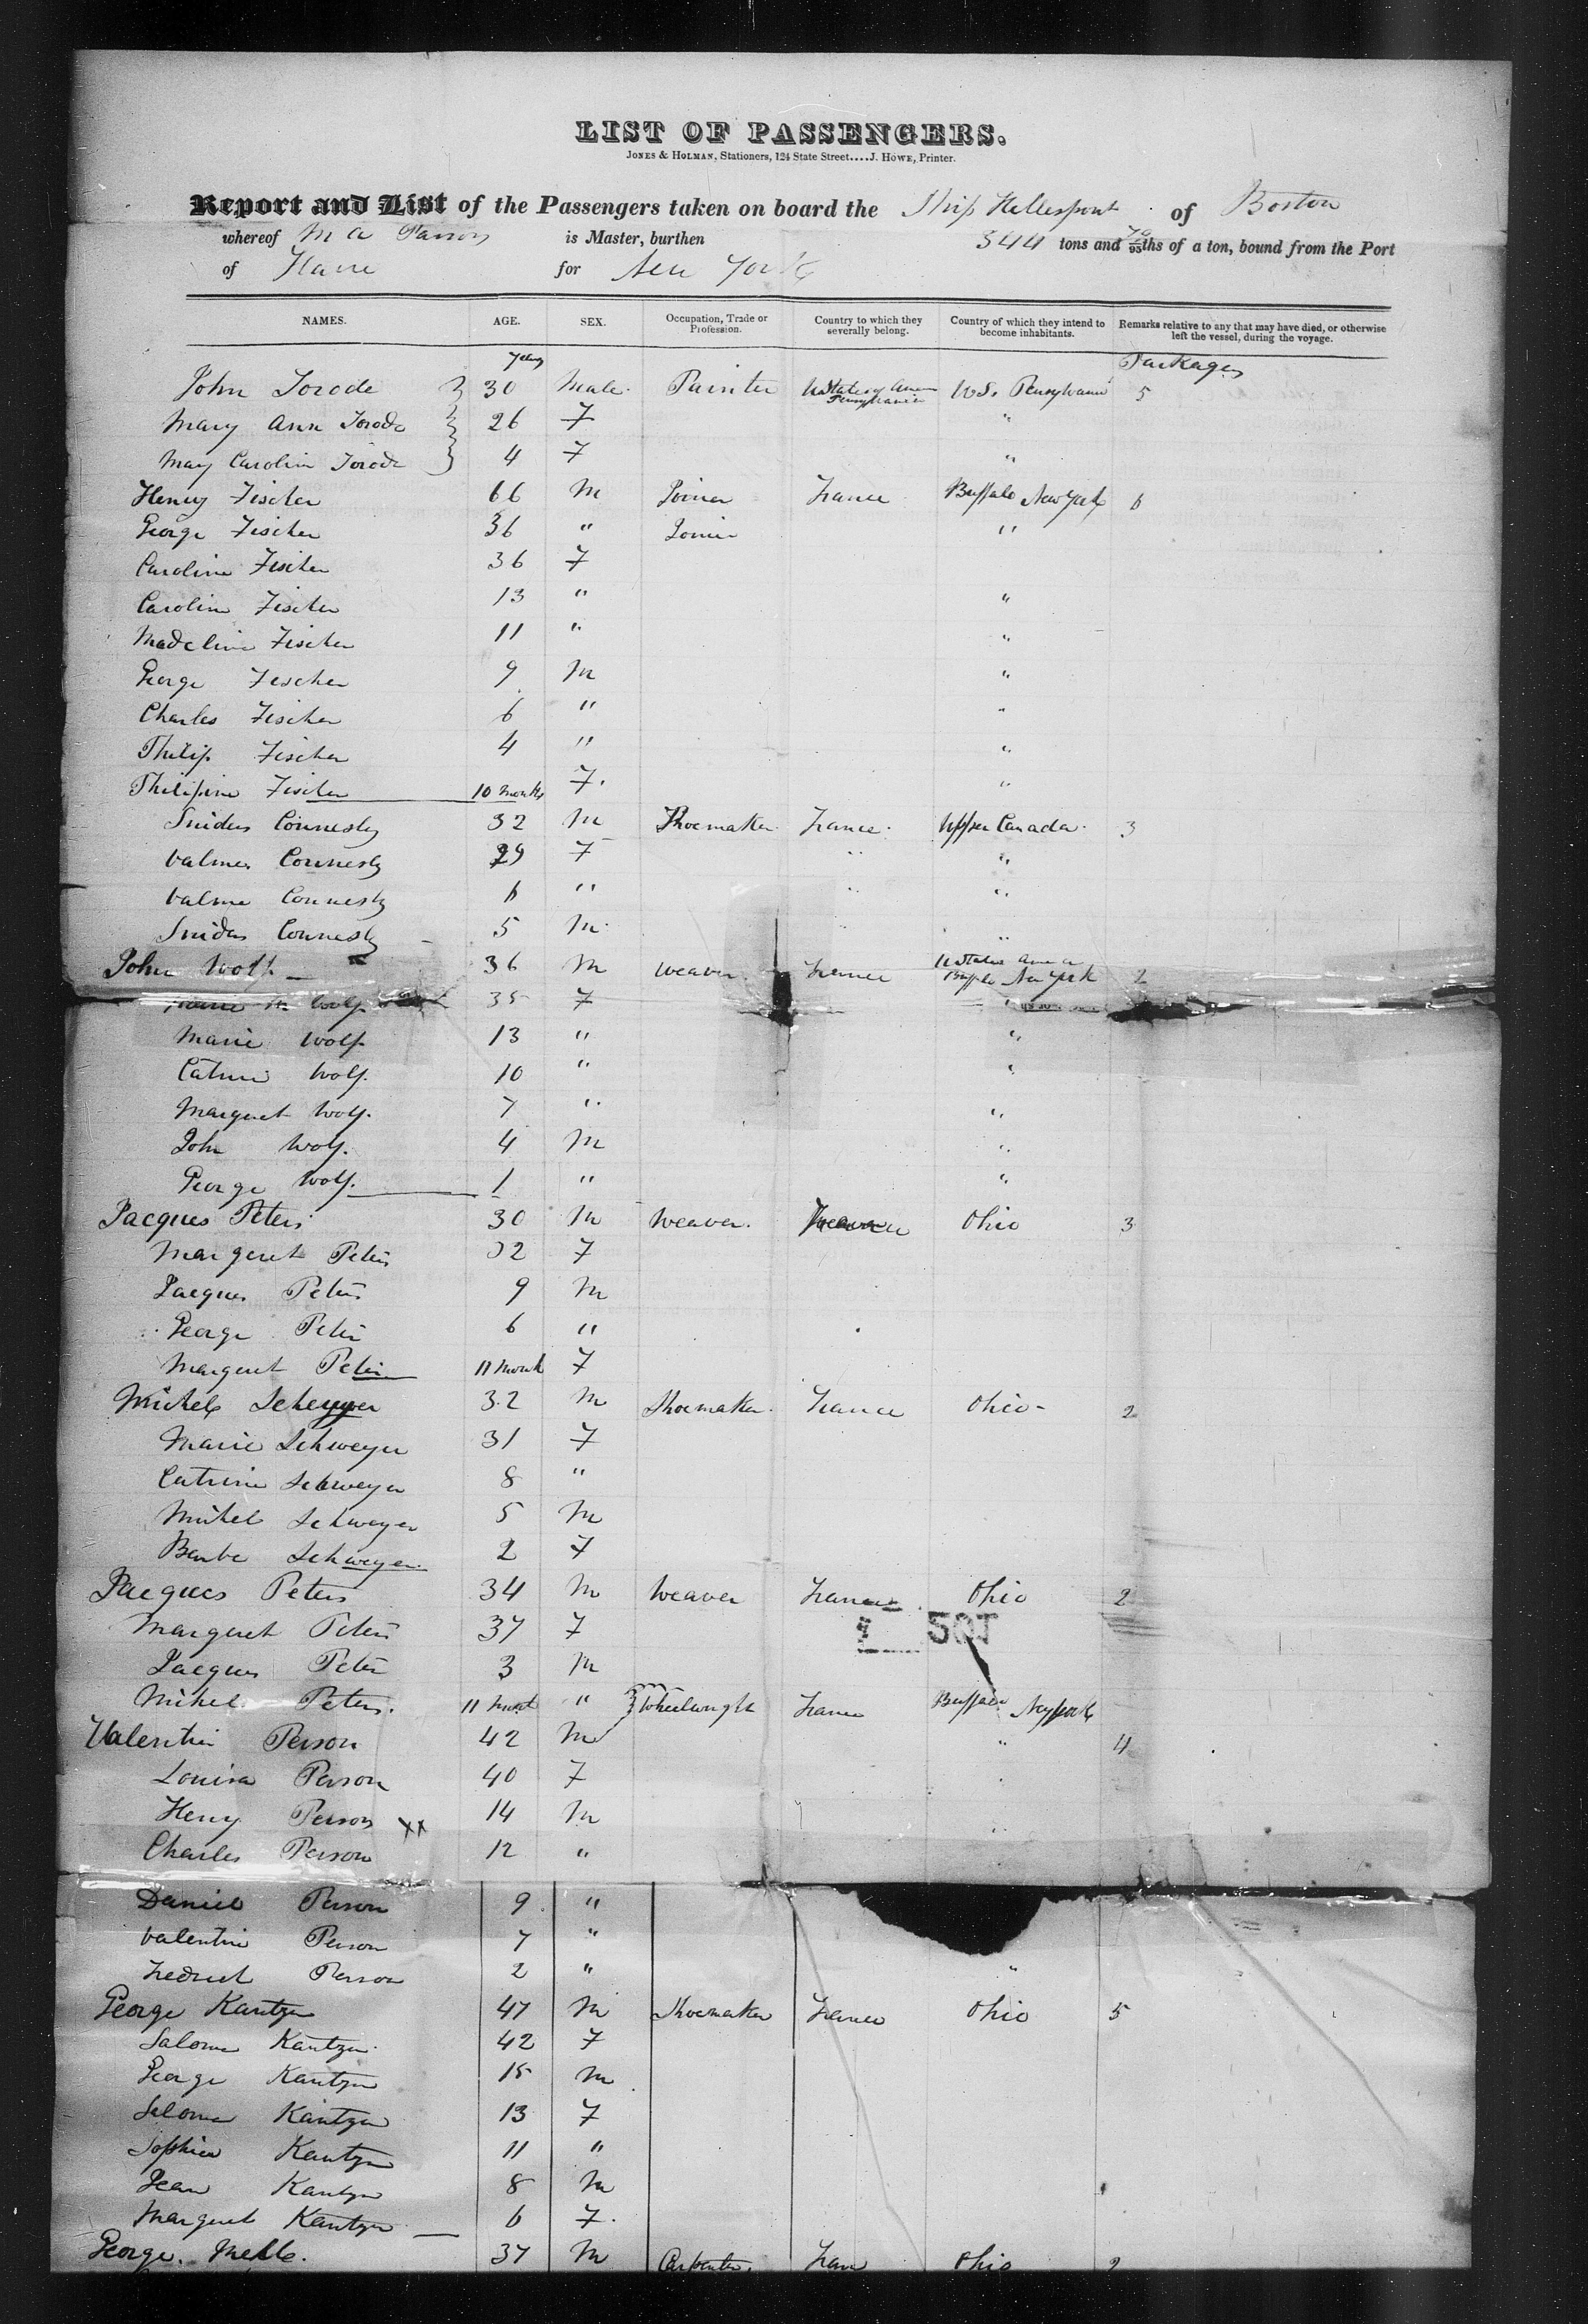 LIST OF PASSENGERS.
JONES & HOLMAN, Stationers, 124 State Street....J. HOWE, Printer.
Report and List of the Passengers taken on board the Ship Hellespont of Boston
whereof M A Parsons is Master, burthen 344 tons and 70/95ths of a ton, bound from the Port
of Havre for New York
NAMES. AGE. SEX. Occupation, Trade or Profession. Country to which they severally belong. Country of which they intend to become inhabitants. Remarks relative to any that may have died, or otherwise left the vessel, during the voyage.
years Packages
John Torode 30 Male Painter U States of Amer Pensylvania U.S. Pensylvania 5
Mary Ann Torode 26 F "
Mary Carolin Torode 4 F "
Henry Fischer 66 M Joiner France Buffalo New York 6
George Fischer 36 " Joiner "
Caroline Fischer 36 F
Carolin Fischer 13 " "
Madeline Fischer 11 " "
George Fischer 9 M "
Charles Fischer 6 " "
Philip Fischer 4 " "
Philipine Fischer 10 months F. "
Snider Connesly 32 M Shoemaker France Upper Canada 3
Valmer Connesly 29 F " "
Valmer Connesly 6 " " "
Snider Connesly 5 M " "
John Wolf 36 M Weaver France U States America Buffalo New York 2
M Wolf 35 F "
Marie Wolf 13 " "
Catrine Wolf. 10 " "
Margaret Wolf. 7 " "
John Wolf. 4 M "
George Wolf. 1 " "
Jacques Peters 30 M Weaver. Ohio 3
Margaret Peters 32 F
Jacques Peters 9 M
George Peters 6 "
Margaret Peters 11 Month F
Michel Scheyyer 32 M Shoemaker France Ohio 2
Marie Schweyer 31 F
Catrine Schweyer 8 "
Michel Schweyer 5 M
Barbe Schweyer 2 F
Jacques Peters 34 M Weaver France Ohio 2
Margaret Peters 37 F
Jacques Peters 3 M
Michel Peters. 11 Month " Wheelwright France Buffalo New York
Valentin Person 42 M " 4
Louisa Person 40 F "
Henry Person xx 14 M "
Charles Person 12 "
Daniel Person 9 "
Valentin Person 7 "
Fredrick Person 2 " "
George Kantzer 47 M Shoemaker France Ohio 5
Salome Kantzer 42 F
George Kantzer 15 M
Salome Kantzer 13 F
Sophia Kantzer 11 "
Jean Kantzer 8 M
Margaret Kantzer 6 F.
George. 37 M Carpenter. France Ohio 2